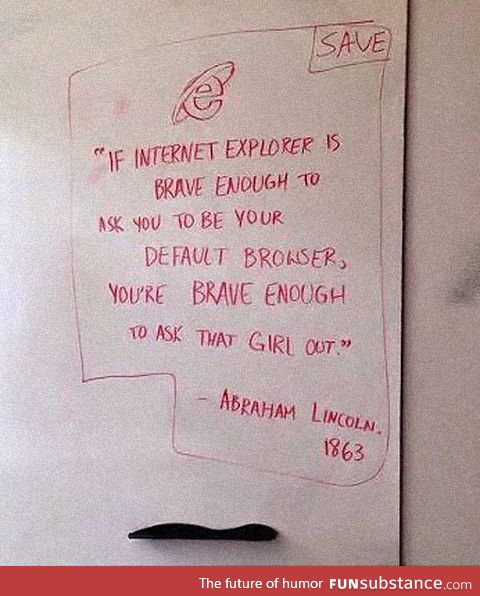 SAVE
"IF INTERNET EXPLORER IS
BRAVE ENOUGH TO
ASK YOU TO BE YOUR
DEFAULT BROWSER,
YOU'RE BRAVE ENOUGH
TO ASK THAT GIRL OUT."
- ABRAHAM LINCOLN.
1863
The future of humor FUNsubstance.com